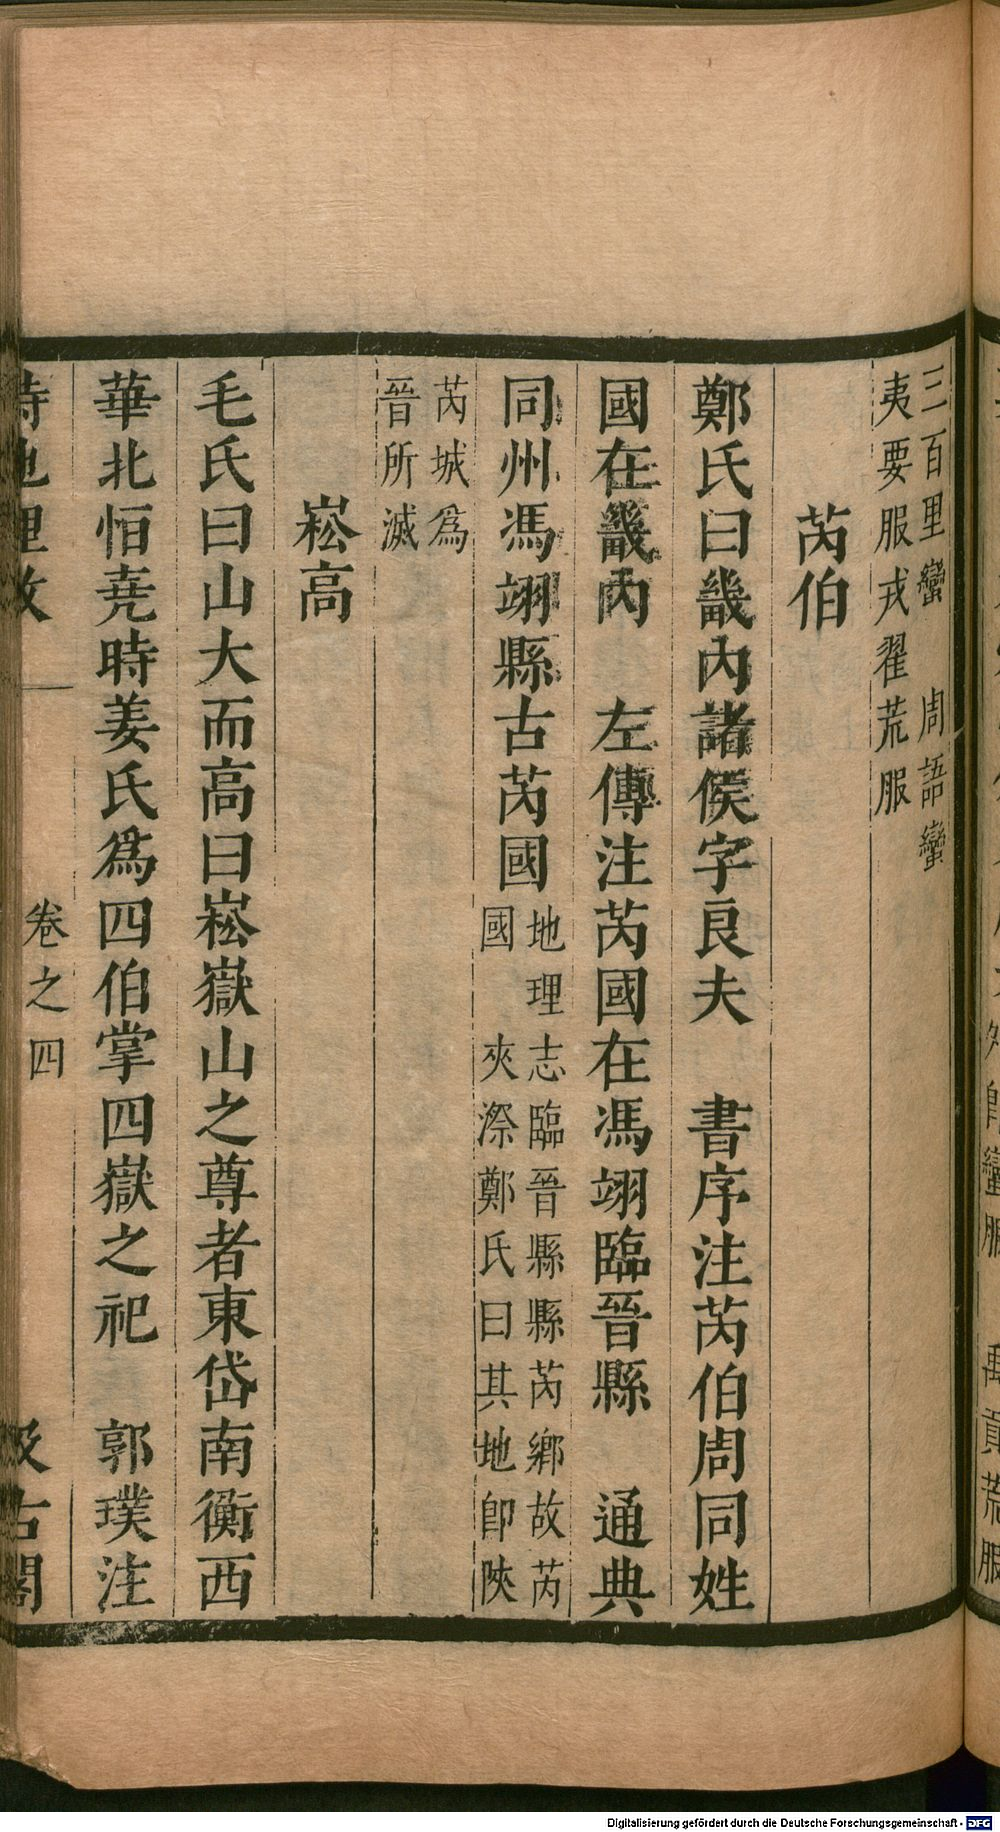 三百里蠻　周語蠻
夷要服戎翟荒服
芮伯
鄭氏曰畿內諸侯字良夫　書序注芮伯周同姓
國在畿內　左傳注芮國在馮翊臨晉縣　通典
同州馮翊縣古芮國
地理志臨晉縣縣芮鄉故芮
國　夾漈鄭氏曰其地卽陝
芮城爲
晉所滅
崧高
毛氏曰山大而高曰崧嶽山之尊者東岱南衡西
華北恒堯時姜氏爲四伯掌四嶽之祀　郭璞注
詩地理攷
卷之四
汲古閣
禹貢荒服
Digitalisierung gefördert durch die Deutsche Forschungsgemeinschaft - DFG